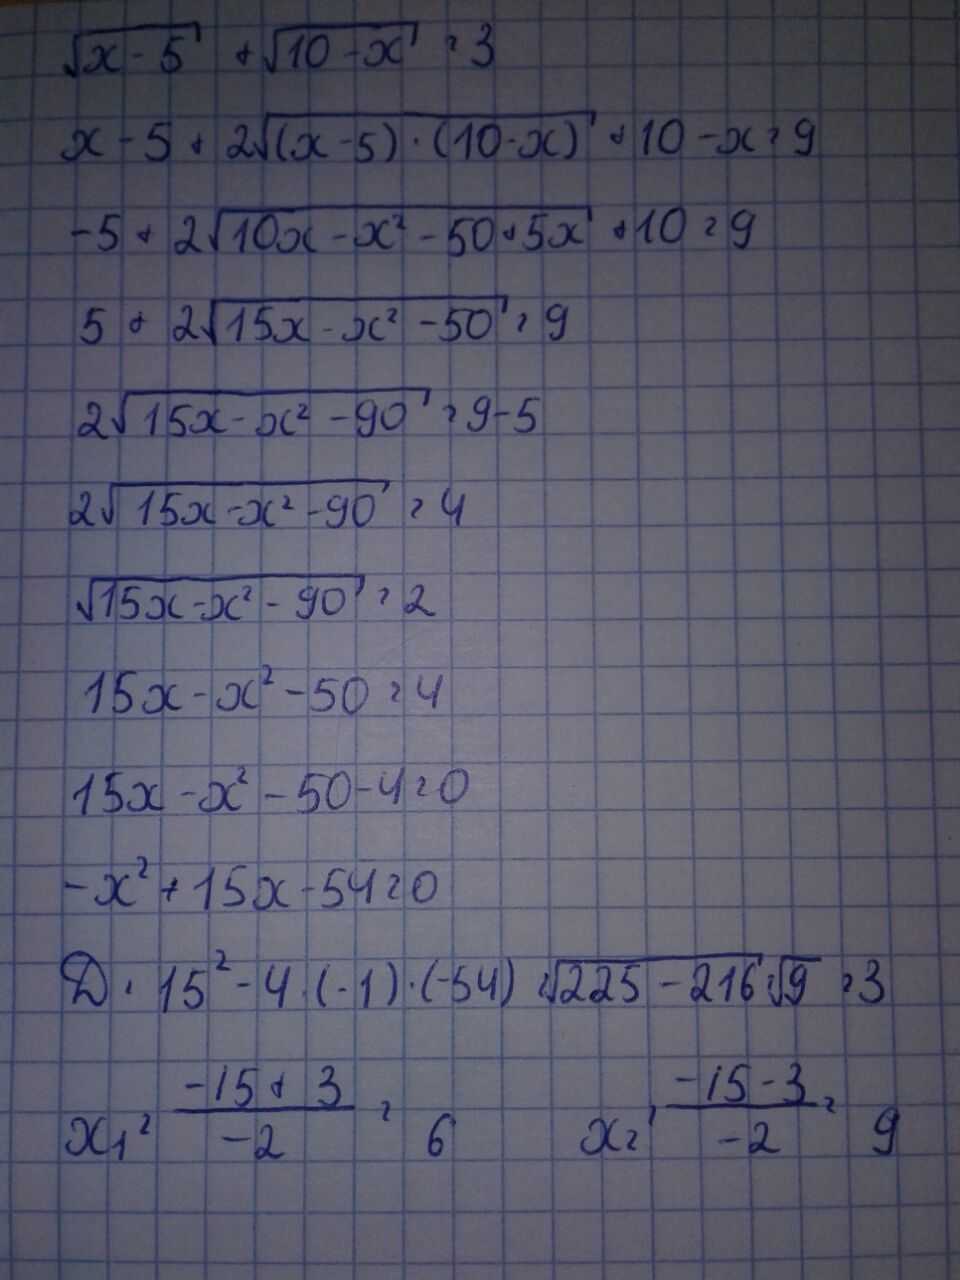 √(x - 5) + √(10 - x) = 3
x - 5 + 2√((x - 5) · (10 - x)) + 10 - x = 9
-5 + 2√(10x - x² - 50 + 5x) + 10 = 9
5 + 2√(15x - x² - 50) = 9
2√(15x - x² - 90) = 9 - 5
2√(15x - x² - 90) = 4
√(15x - x² - 90) = 2
15x - x² - 50 = 4
15x - x² - 50 - 4 = 0
-x² + 15x - 54 = 0
D = 15² - 4 · (-1) · (-54) = √(225 - 216) = √9 = 3
x₁ = (-15 + 3)/(-2) = 6 x₂ = (-15 - 3)/(-2) = 9